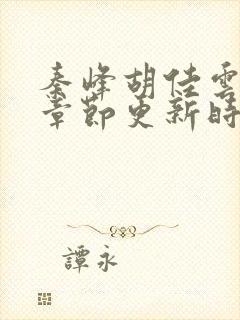 秦峰胡佳雲
章節更新時
譚永